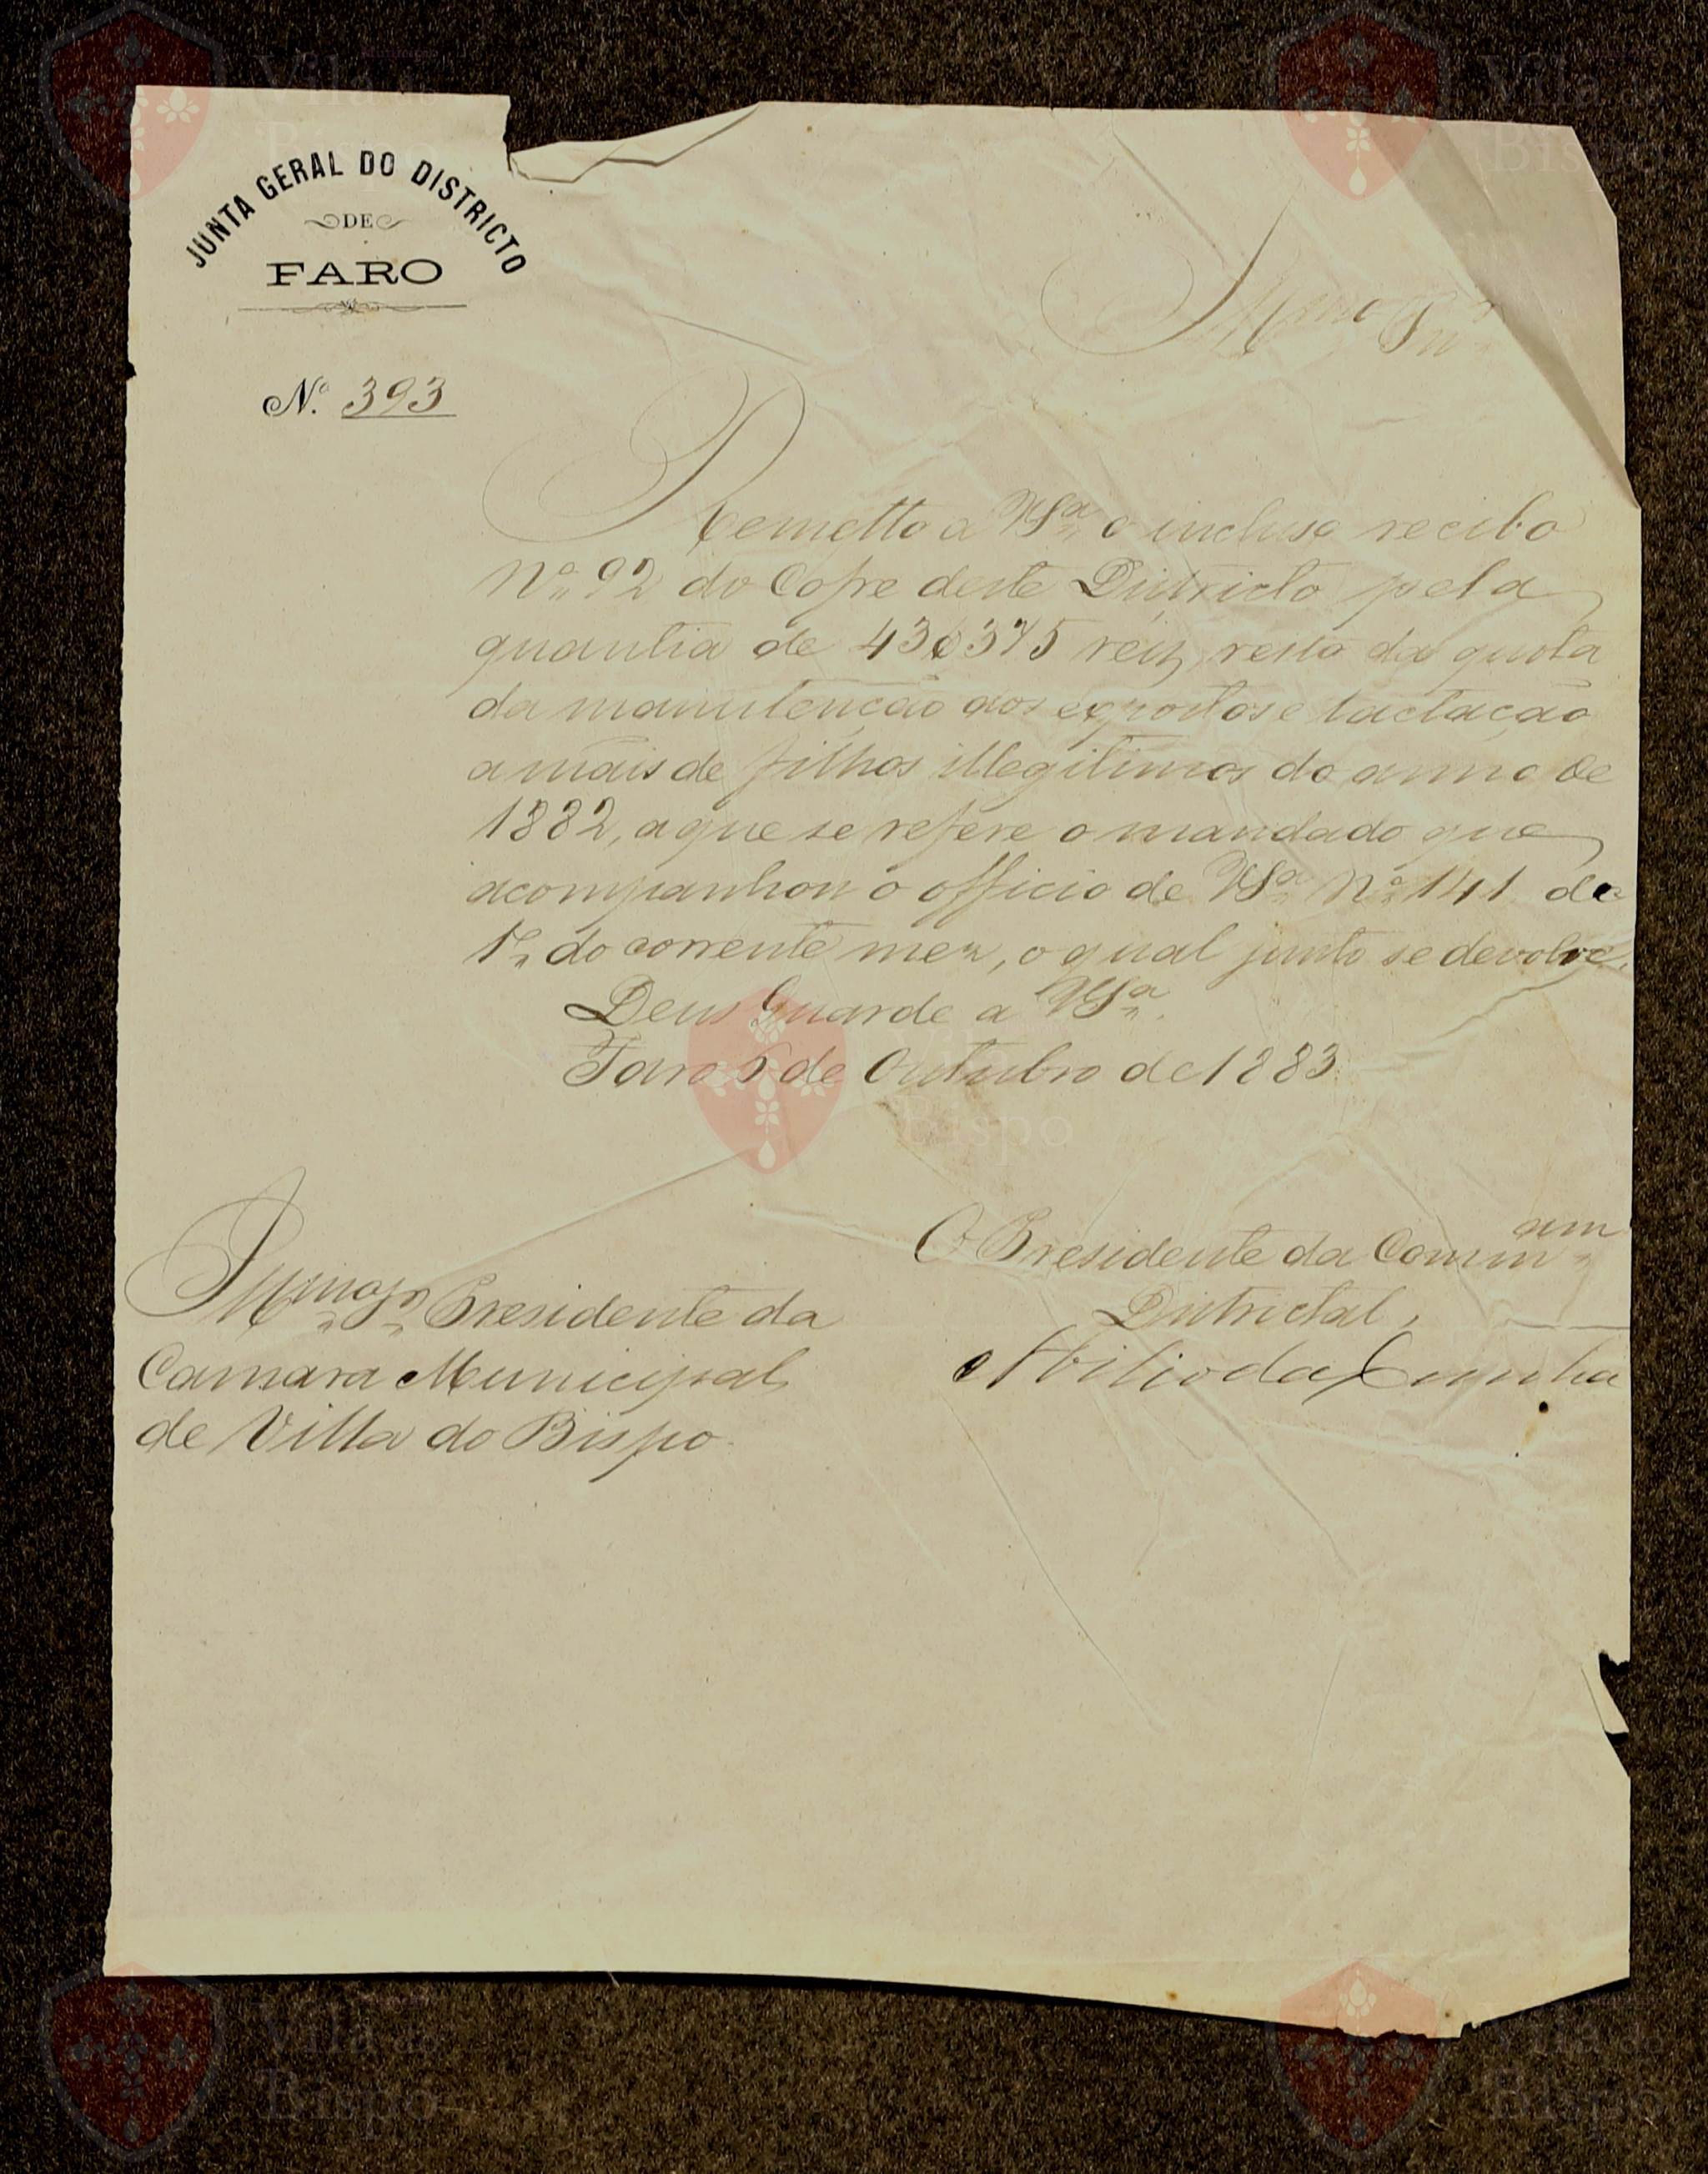 JUNTA GERAL DO DISTRICTO
DE
FARO
Nº. 393
Illmo Snr
Remetto a VSª o incluso recibo
Nº 92 do Cofre deste Districto pela
quantia de 43$375 réis, resto da quota
da manutenção dos expostos e lactação
a mais de filhos illegitimos do anno de
1882, a que se refere o mandado que
acompanhou o officio de VSª Nº 141 de
1º do corrente mez, o qual junto se devolve.
Deus Guarde a VSª.
Faro 5 de Outubro de 1883.
O Presidente da Commam
Districtal,
Abilio da Cunha
Illmo Sr Presidente da
Camara Municipal
de Villa do Bispo.
Vila do
Bispo